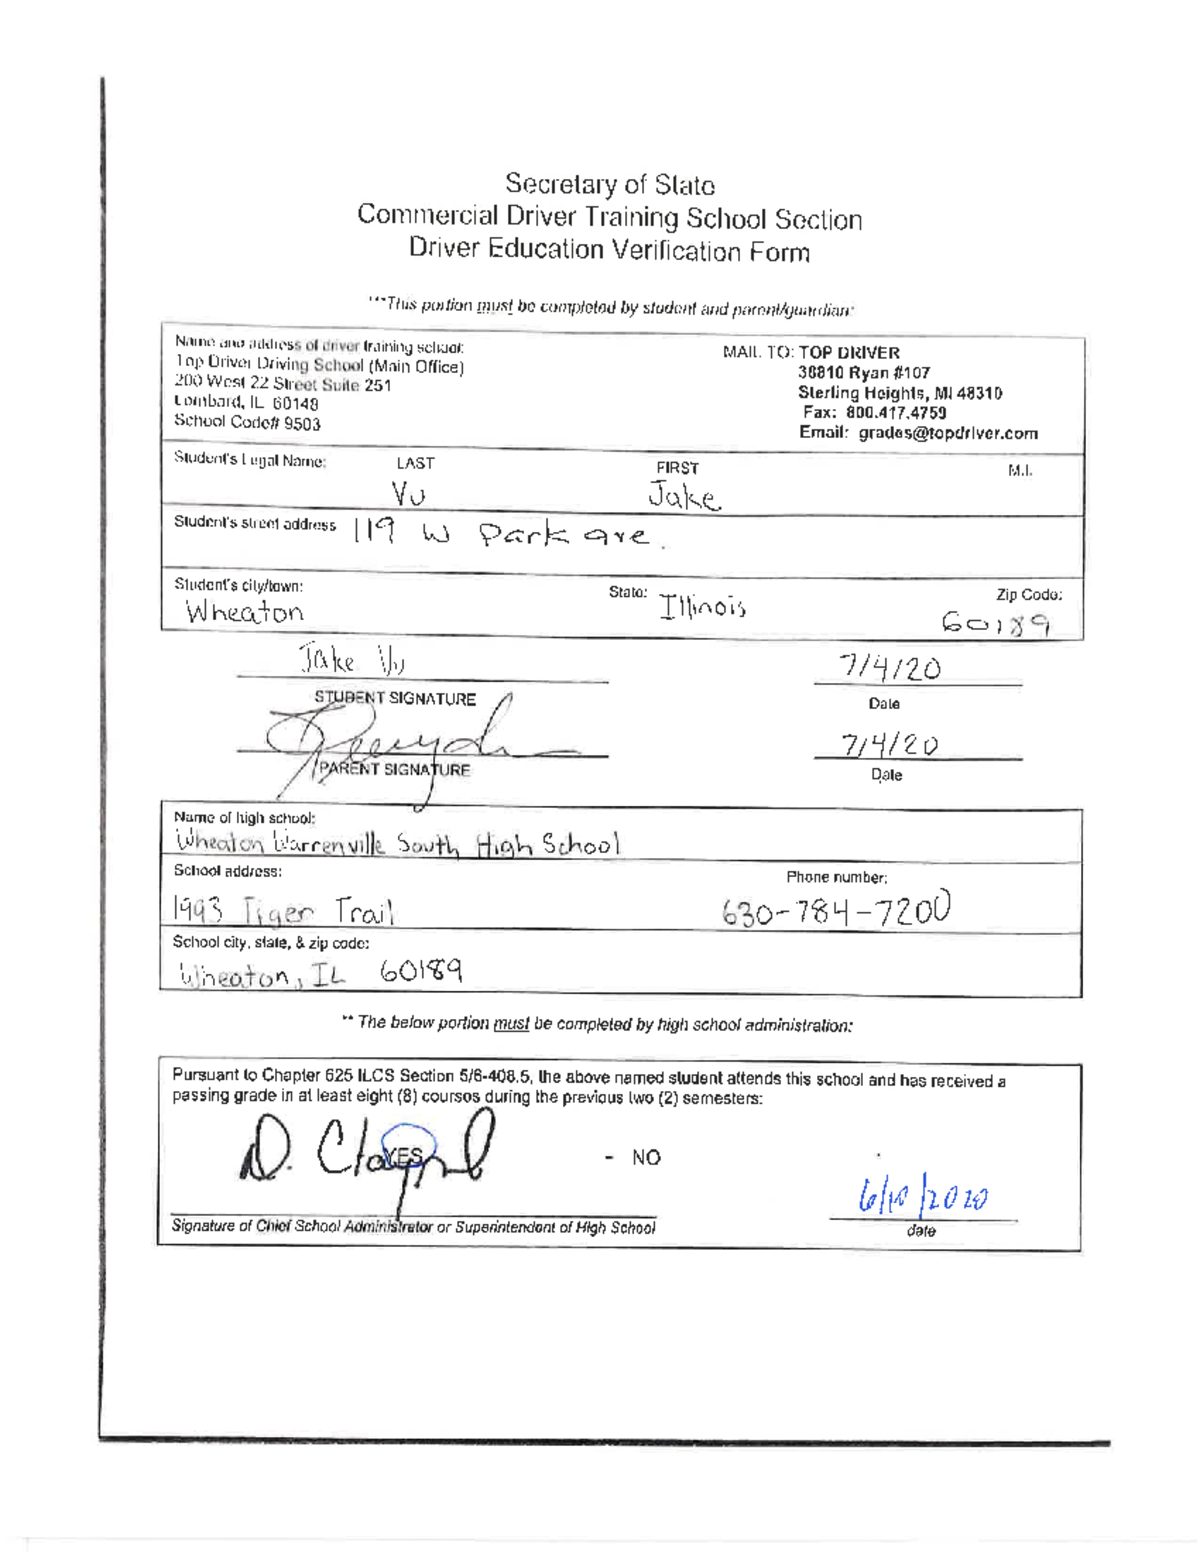 Secretary of State
Commercial Driver Training School Section
Driver Education Verification Form
***This portion must be completed by student and parent/guardian:
Name and address of driver training school:
Top Driver Driving School (Main Office)
200 West 22 Street Suite 251
Lombard, IL 60148
School Code# 9503
MAIL TO: TOP DRIVER
38810 Ryan #107
Sterling Heights, MI 48310
Fax: 800.417.4759
Email: grades@topdriver.com
Student's Legal Name: LAST FIRST M.I.
Vu Jake
Student's street address 119 W Park ave.
Student's city/town: State: Zip Code:
Wheaton Illinois 60189
Jake Vu 7/4/20
STUDENT SIGNATURE Date
7/4/20
PARENT SIGNATURE Date
Name of high school:
Wheaton Warrenville South High School
School address: Phone number:
1993 Tiger Trail 630-784-7200
School city, state, & zip code:
Wheaton, IL 60189
** The below portion must be completed by high school administration:
Pursuant to Chapter 625 ILCS Section 5/6-408.5, the above named student attends this school and has received a
passing grade in at least eight (8) courses during the previous two (2) semesters:
YES - NO
6/10/2020
Signature of Chief School Administrator or Superintendent of High School date